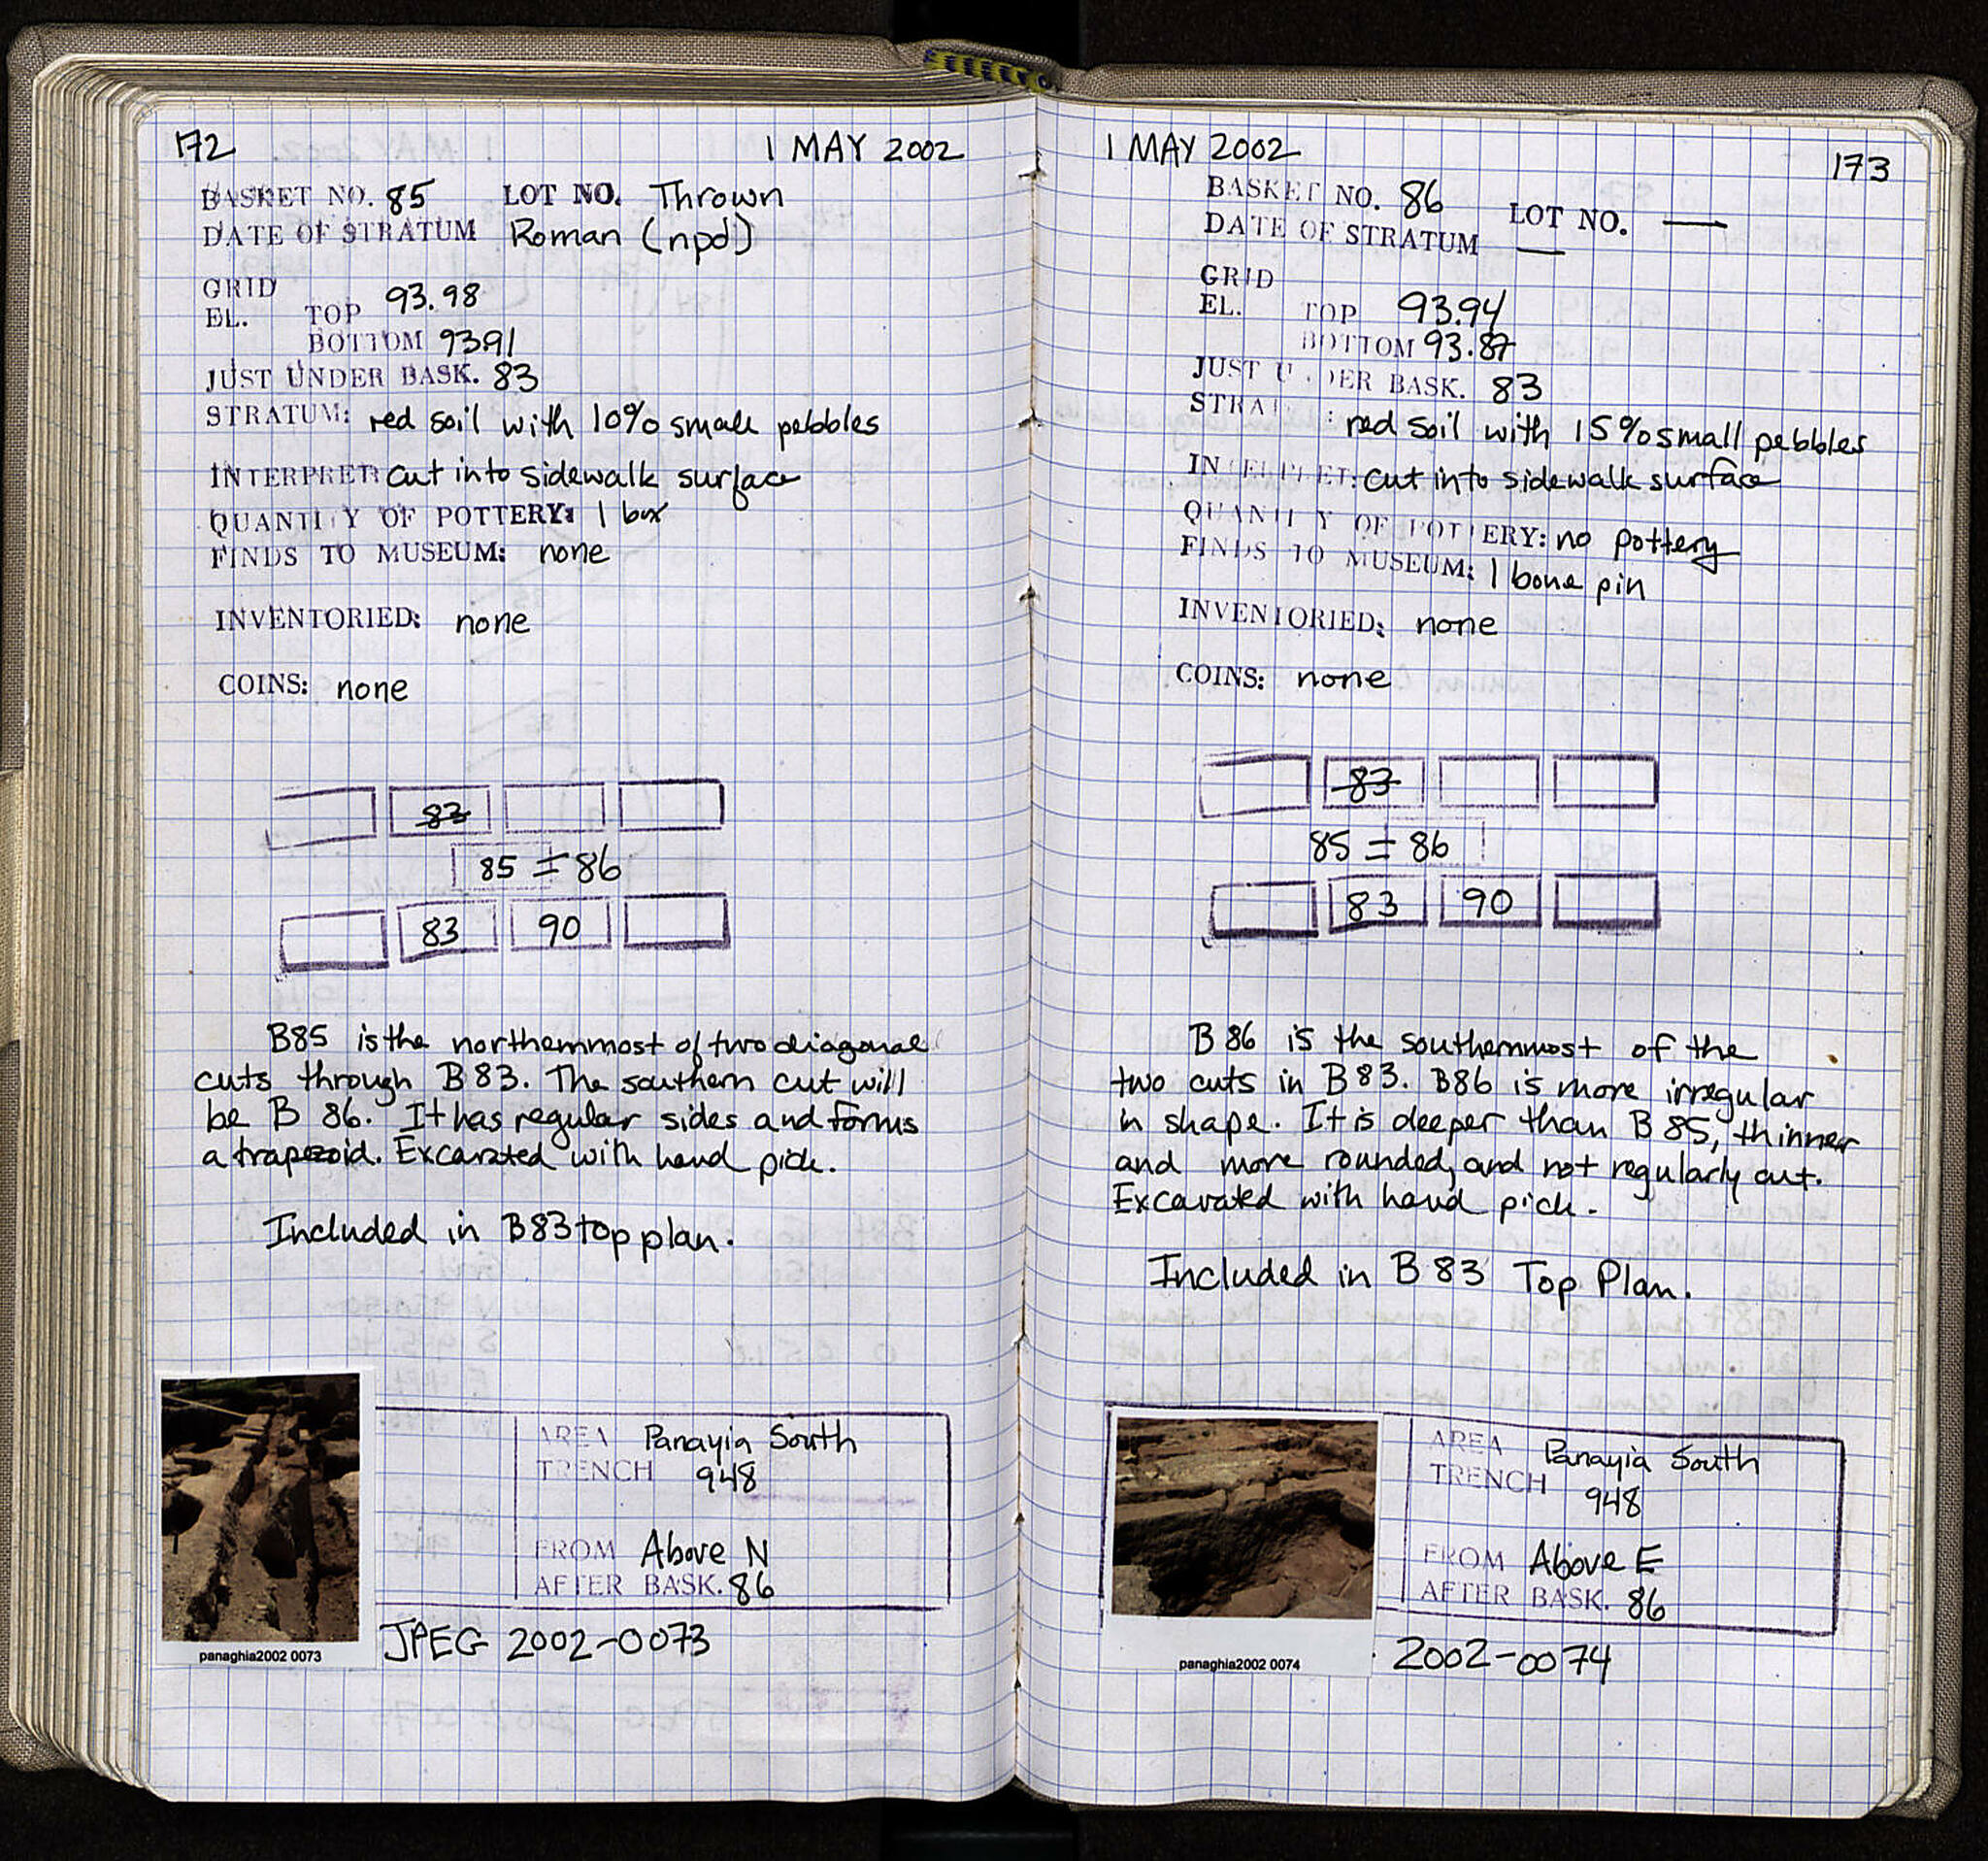 172 1 MAY 2002
BASKET NO. 85 LOT NO. Thrown
DATE OF STRATUM Roman (npd)
GRID
EL. TOP 93.98
BOTTOM 93.91
JUST UNDER BASK. 83
STRATUM: red soil with 10% small pebbles
INTERPRET: cut into sidewalk surface
QUANTITY OF POTTERY: 1 box
FINDS TO MUSEUM: none
INVENTORIED: none
COINS: none
83
85 = 86
83 90
B85 is the northernmost of two diagonal
cuts through B83. The southern cut will
be B 86. It has regular sides and forms
a trapezoid. Excavated with hand pick.
Included in B83 top plan.
AREA Panayia South
TRENCH 948
FROM Above N
AFTER BASK. 86
panaghia2002 0073
JPEG 2002-0073
1 MAY 2002 173
BASKET NO. 86 LOT NO. —
DATE OF STRATUM —
GRID
EL. TOP 93.94
BOTTOM 93.87
JUST UNDER BASK. 83
STRATUM: red soil with 15% small pebbles
INTERPRET: cut into sidewalk surface
QUANTITY OF POTTERY: no pottery
FINDS TO MUSEUM: 1 bone pin
INVENTORIED: none
COINS: none
83
85 = 86
83 90
B 86 is the southernmost of the
two cuts in B83. B86 is more irregular
in shape. It is deeper than B 85, thinner
and more rounded, and not regularly cut.
Excavated with hand pick.
Included in B 83 Top Plan.
AREA Panayia South
TRENCH 948
FROM Above E
AFTER BASK. 86
panaghia2002 0074
2002-0074